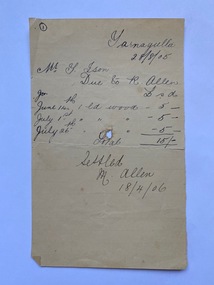 Tarnagulla
28/8/05
Mr T Ison
Due to R Allen
for £ s d
June 14th 1 ld wood - 5 -
July 1st " " " - 5 -
July 26th " " " - 5 -
Total 15/-
Settled
M. Allen
18/4/06